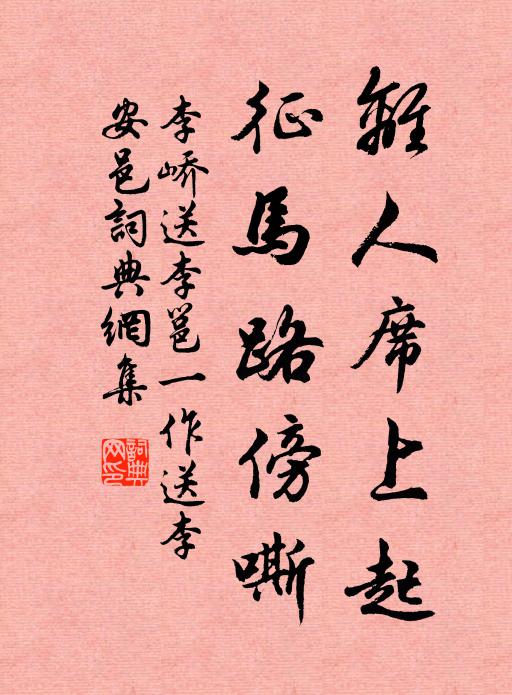 離人席上起
征馬路傍嘶
李嶠送李邕一作送李
安邑詞典網集
詞典網印